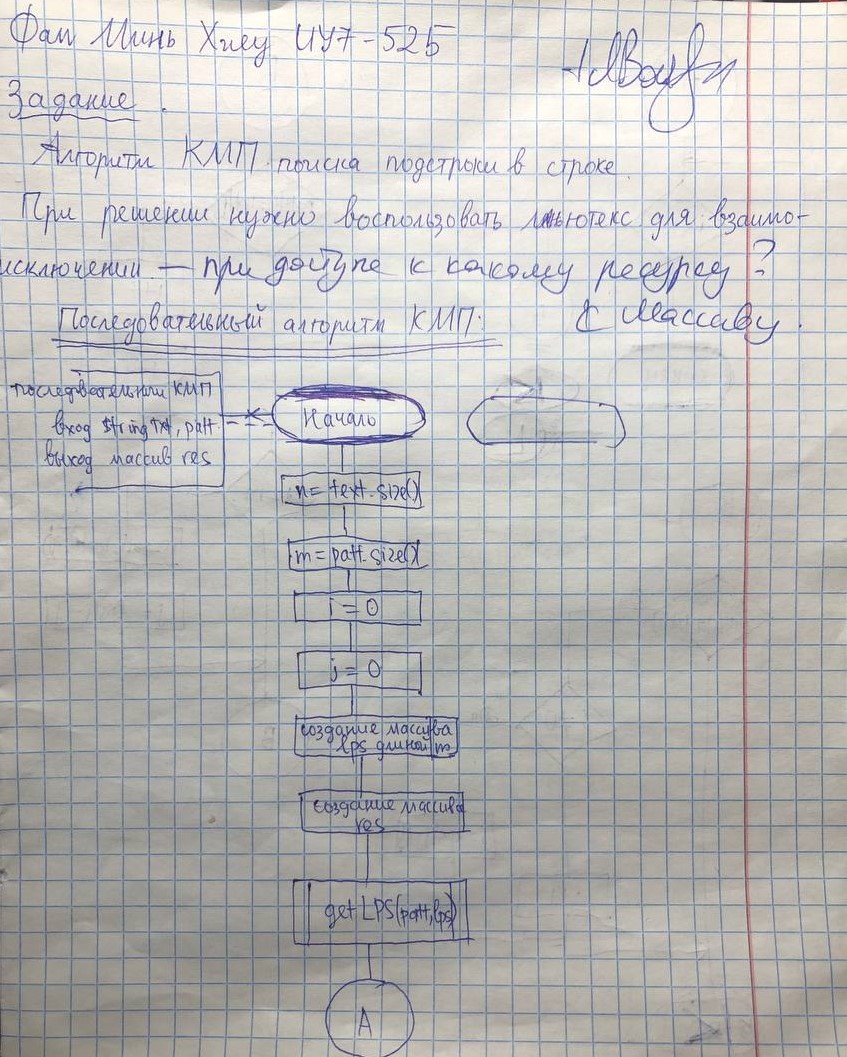 Фам Минь Хиеу ИУ7-52Б
Задание.
Алгоритм КМП поиска подстроки в строке.
При решении нужно воспользовать мьютекс для взаимо-
исключении — при доступе к какому ресурсу?
К массиву.
Последовательный алгоритм КМП:
последвательнии КМП
вход string txt, patt
выход массив res
Начало
n = text.size()
m = patt.size()
i = 0
j = 0
создание массива
lps длиной m
создание массива
res
getLPS(patt, lps)
A